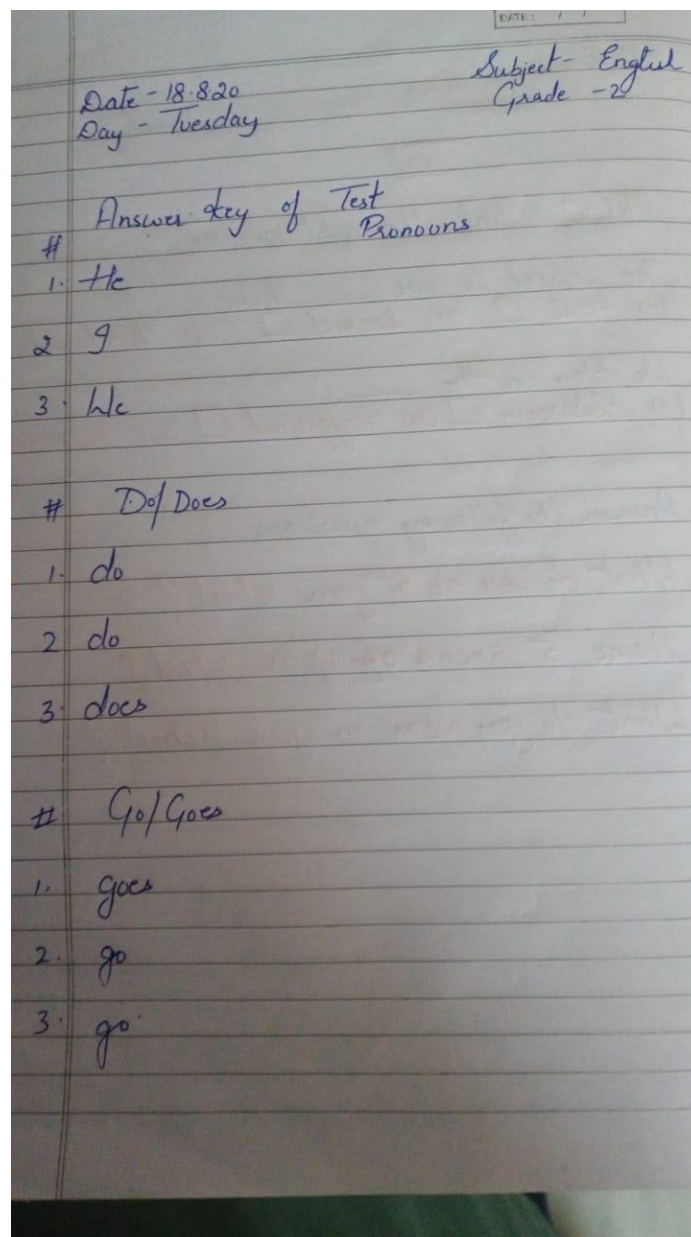 DATE: / /
Date - 18.8.20
Subject - English
Day - Tuesday
Grade - 2
Answer key of Test
# Pronouns
1. He
2 I
3. We
# Do/Does
1. do
2 do
3. does
# Go/Goes
1. goes
2. go
3. go